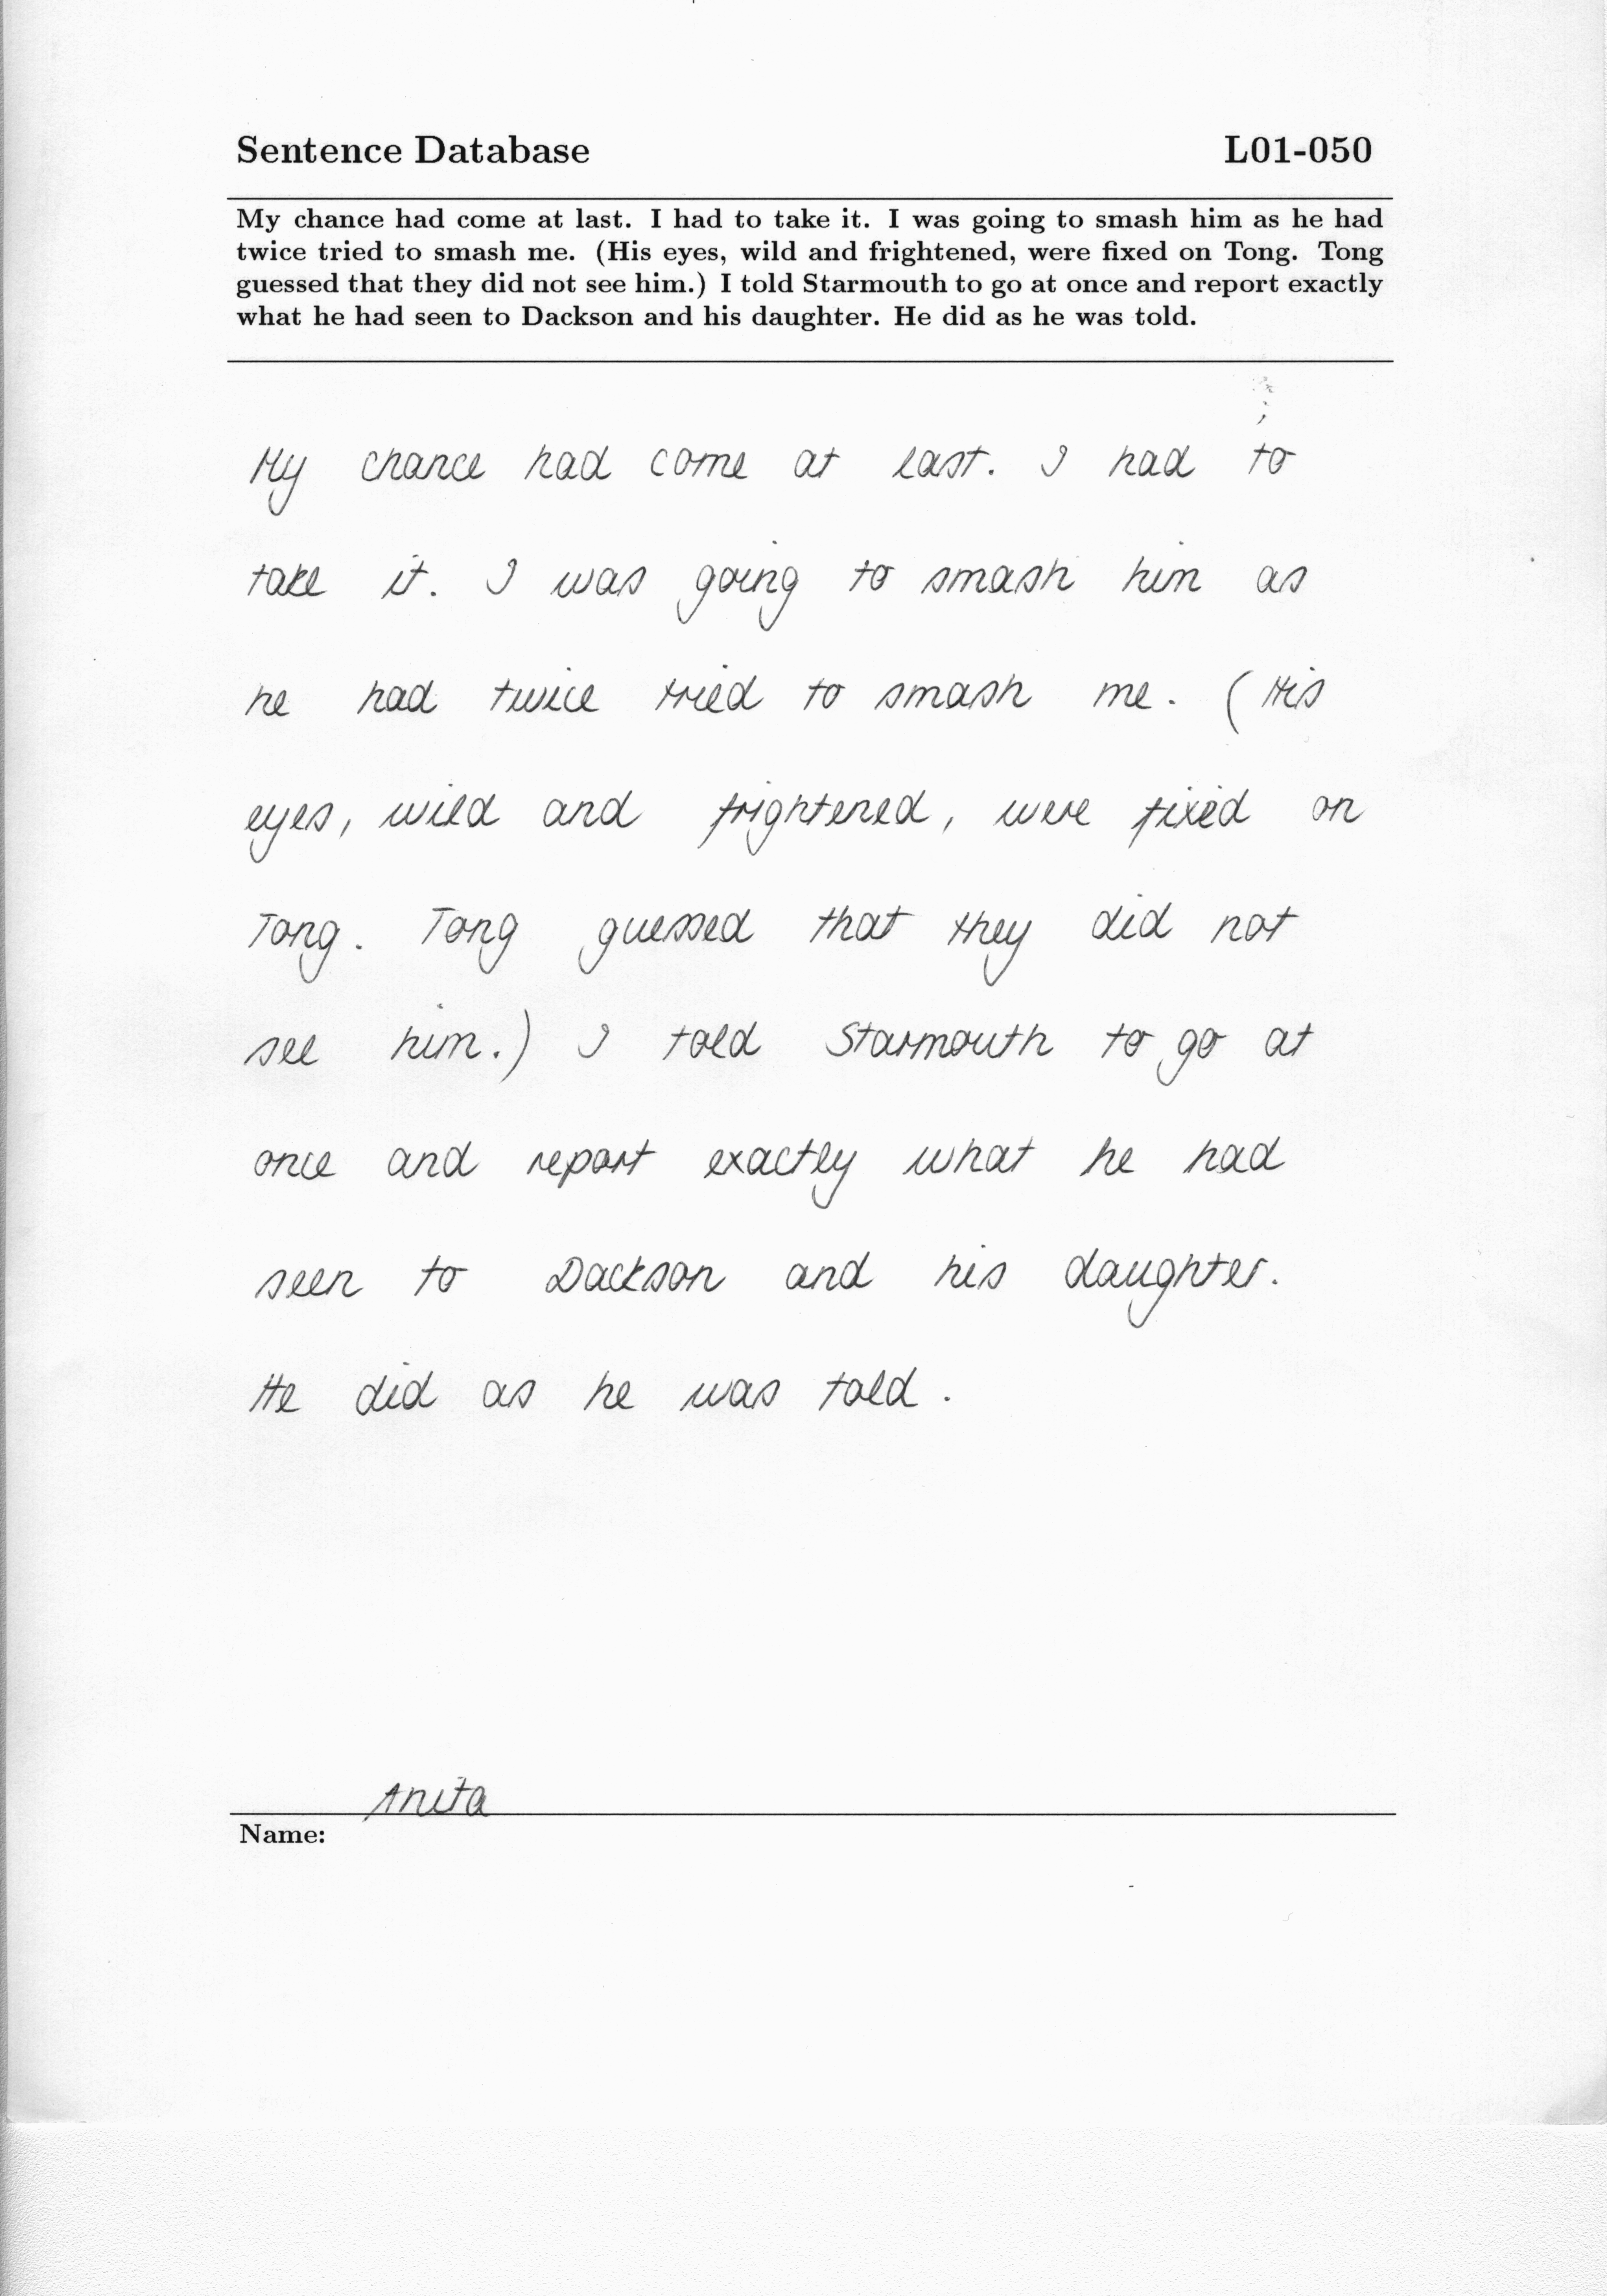 Sentence Database L01-050
My chance had come at last. I had to take it. I was going to smash him as he had
twice tried to smash me. (His eyes, wild and frightened, were fixed on Tong. Tong
guessed that they did not see him.) I told Starmouth to go at once and report exactly
what he had seen to Dackson and his daughter. He did as he was told.
My chance had come at last. I had to
take it. I was going to smash him as
he had twice tried to smash me. (His
eyes, wild and frightened, were fixed on
Tong. Tong guessed that they did not
see him.) I told Starmouth to go at
once and report exactly what he had
seen to Dackson and his daughter.
He did as he was told.
Anita
Name: